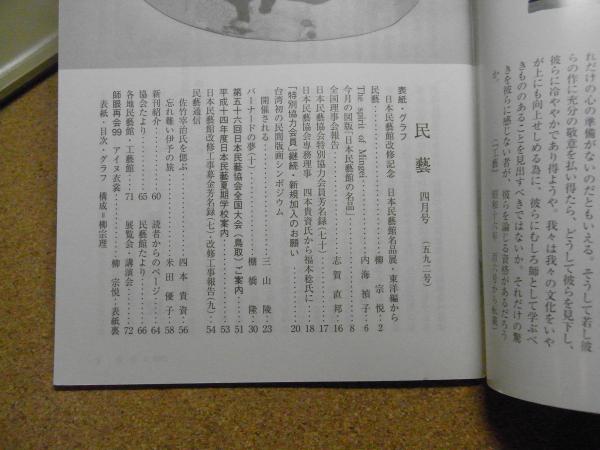 れだけの心の準備がないのだともいえる。そうして若し彼
らの作に充分の敬意を払い得たら、どうして彼らを見下し、
彼らに冷ややかであり得ようや、我々は我々の文化をいや
が上にも向上せしめる為に、彼らにむしろ師として学ぶべ
きもののあることを見出すべきではないか。それだけの驚
きを彼らに感じない者が、彼らを論じる資格があるだろう
か。
民藝 四月号 (五九二号)
表紙・グラフ
日本民藝館改修記念 日本民藝館名品展・東洋編から
民藝 柳 宗悦 2
The spirit of Mingei 内海 禎子 6
今月の図版「日本民藝館の名品」 8
全国理事会報告 志賀 直邦 16
日本民藝協会特別協力会員芳名録(七十) 17
日本民藝協会専務理事 四本貴資氏から福本稔氏に 18
「特別協力会員」継続・新規加入のお願い 20
台湾初の民間版画シンポジウム
開催される 三山 陵 23
バーナードの夢(十) 棚橋 隆 30
第五十六回日本民藝協会全国大会(鳥取)ご案内 51
平成十四年度日本民藝夏期学校案内 53
日本民藝館改修工事募金芳名録(七)改修工事報告(九) 54
民藝通信
佐竹宗治氏を偲ぶ 四本 貴資 56
忘れ難い伊予の旅 米田 優子 58
新刊紹介 60 読者からのページ 64
協会たより 65 民藝館たより 66
各地民藝館・工藝館 71 展覧会・講演会 72
師眼再会99 アイヌ衣裳 柳 宗悦・表紙裏
表紙・目次・グラフ 構成=柳宗理